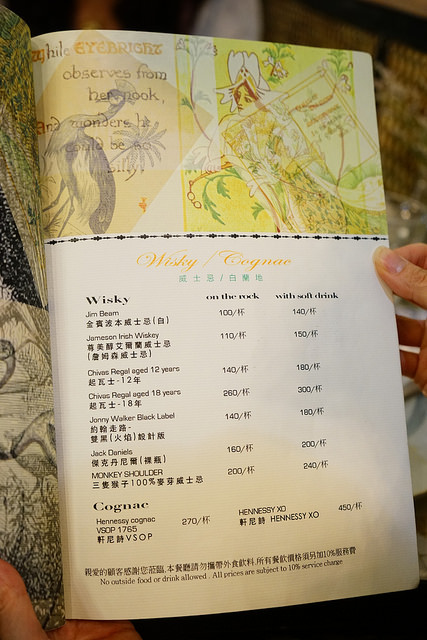 while EYEBRIGHT
observes from
her nook,
And wonders he
could be so
silly!
Wisky / Cognac
威士忌 / 白蘭地
Wisky on the rock with soft drink
Jim Beam 100/杯 140/杯
金賓波本威士忌(白)
Jameson Irish Wiskey 110/杯 150/杯
尊美醇艾爾蘭威士忌
(詹姆森威士忌)
Chivas Regal aged 12 years 140/杯 180/杯
起瓦士-12年
Chivas Regal aged 18 years 260/杯 300/杯
起瓦士-18年
Jonny Walker Black Label 140/杯 180/杯
約翰走路-
雙黑(火焰)設計版
Jack Daniels 160/杯 200/杯
傑克丹尼爾(裸瓶)
MONKEY SHOULDER 200/杯 240/杯
三隻猴子100%麥芽威士忌
Cognac
Hennessy cognac 270/杯 HENNESSY XO 450/杯
VSOP 1765 軒尼詩 HENNESSY XO
軒尼詩VSOP
親愛的顧客感謝您蒞臨,本餐廳請勿攜帶外食飲料,所有餐飲價格須另加10%服務費
No outside food or drink allowed . All prices are subject to 10% service charge